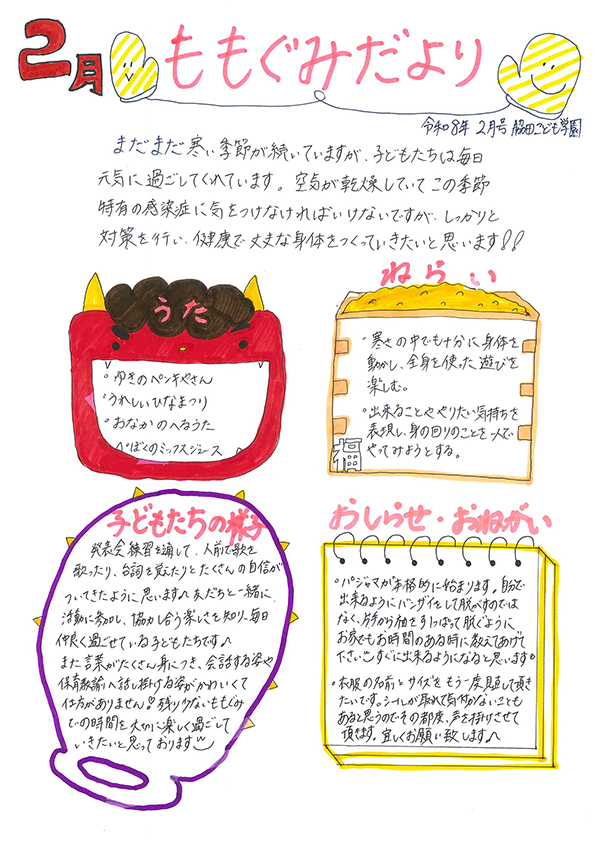 2月
ももぐみだより
令和8年 2月号 脇田こども学園
まだまだ寒い季節が続いていますが、子どもたちは毎日
元気に過ごしてくれています。空気が乾燥していてこの季節
特有の感染症に気をつけなければいけないですが、しっかりと
対策を行い、健康で丈夫な身体をつくっていきたいと思います!!
うた
◦ゆきのペンキやさん
◦うれしいひなまつり
◦おなかのへるうた
◦ぼくのミックスジュース
ねらい
◦寒さの中でも十分に身体を
動かし、全身を使った遊びを
楽しむ。
◦出来ることややりたい気持ちを
表現し、身の回りのことを一人で
やってみようとする。
福
子どもたちの様子
発表会練習を通して、人前で歌を
歌ったり、台詞を覚えたりとたくさんの自信が
ついてきたように思います。友だちと一緒に
活動に参加し、協力し合う楽しさを知り、毎日
仲良く過ごせている子どもたちです
また言葉がたくさん身につき、会話する姿や
保育教諭へ話し掛ける姿がかわいくて
仕方がありません!残り少ないももぐみ
での時間を大切に楽しく過ごして
いきたいと思っております
おしらせ・おねがい
◦パジャマが本格的に始まります。自分で
出来るようにバンザイをして脱がすのでは
なく、片手から袖を引っぱって脱ぐように
お家でもお時間のある時に教えてあげて
下さい すぐに出来るようになると思います
◦衣服の名前とサイズをもう一度見直して頂き
たいです。シールが取れて気付かないことも
あると思うのでその都度、声を掛けさせて
頂きます。宜しくお願い致します